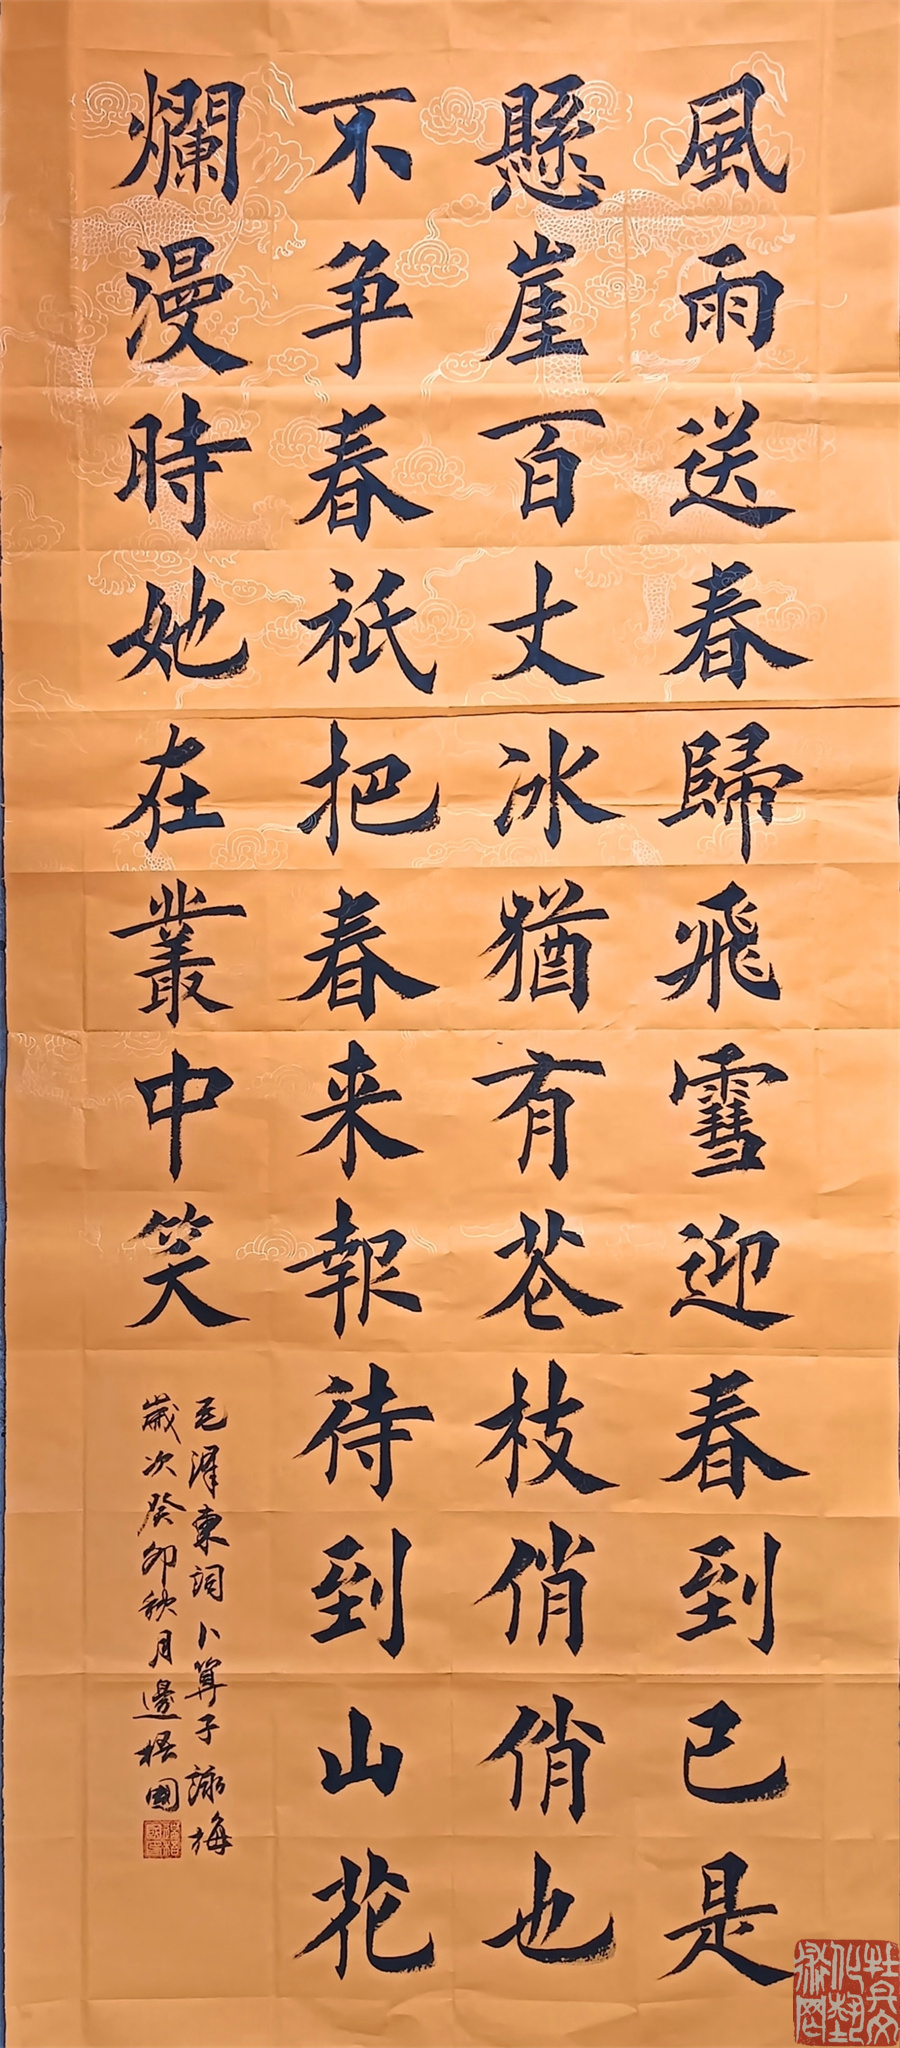 風雨送春歸飛雪迎春到已是
懸崖百丈冰猶有芲枝俏俏也
不争春祇把春来報待到山花
爛漫時她在叢中笑
毛澤東詞卜算子詠梅
歲次癸卯秋月邊國